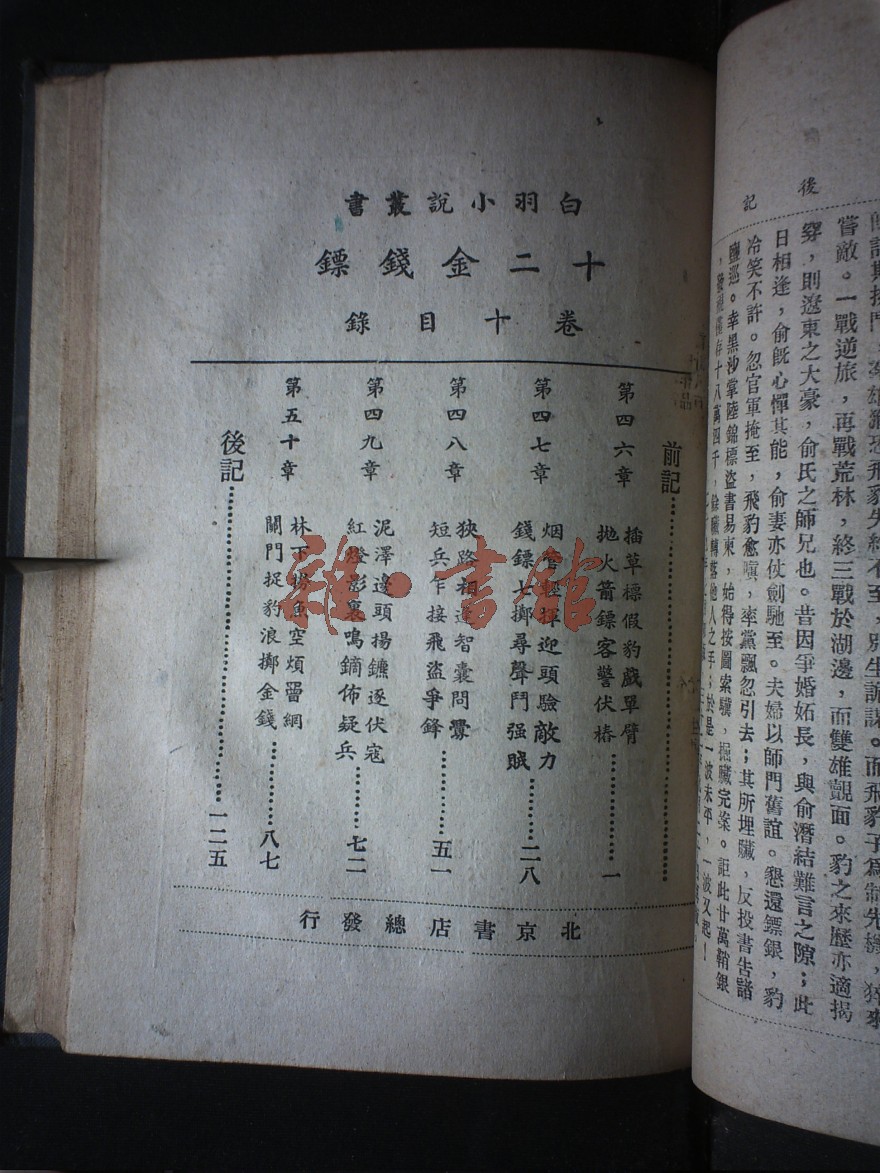 白羽小說叢書
十二金錢鏢
卷十目錄
前記
第四六章
插草標假豹戲單臂
拋火箭鏢客警伏樁
一
第四七章
烟管輕揮迎頭驗敵力
錢鏢七擲尋聲鬥强賊
二八
第四八章
狹路相逢智囊問釁
短兵乍接飛盜爭鋒
五一
第四九章
泥澤邊頭揚鑣逐伏寇
紅燈影裏鳴鏑佈疑兵
七二
第五十章
林下撈魚空煩罾網
關門捉豹浪擲金錢
八七
後記
一二五
北京書店總發行
雜·書館
後記
嘗敵。一戰逆旅,再戰荒林,終三戰於湖邊,而雙雄覿面。豹之來歷亦適揭
穿,則遼東之大豪,俞氏之師兄也。昔因爭婚妬長,與俞潛結難言之隙;此
日相逢,俞旣心憚其能,俞妻亦仗劍馳至。夫婦以師門舊誼。懇還鏢銀,豹
冷笑不許。忽官軍掩至,飛豹愈嗔,率黨飄忽引去;其所埋贓,反投書告諸
鹽巡。幸黑沙掌陸錦標盜書易柬,始得按圖索驥,掘贓完案。詎此廿萬鞘銀
餘贓轉落他人之手;於是一波未平,一波又起!